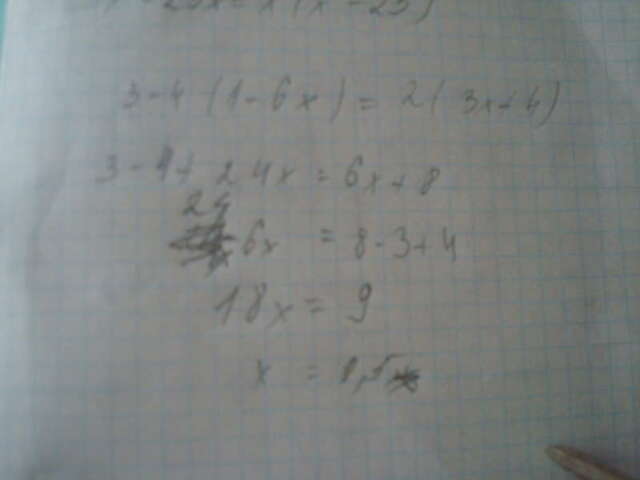 - 20x = x (x - 25)
3 - 4 (1 - 6x) = 2 (3x + 4)
3 - 4 + 24x = 6x + 8
24
6x = 8 - 3 + 4
18x = 9
x = 0,5